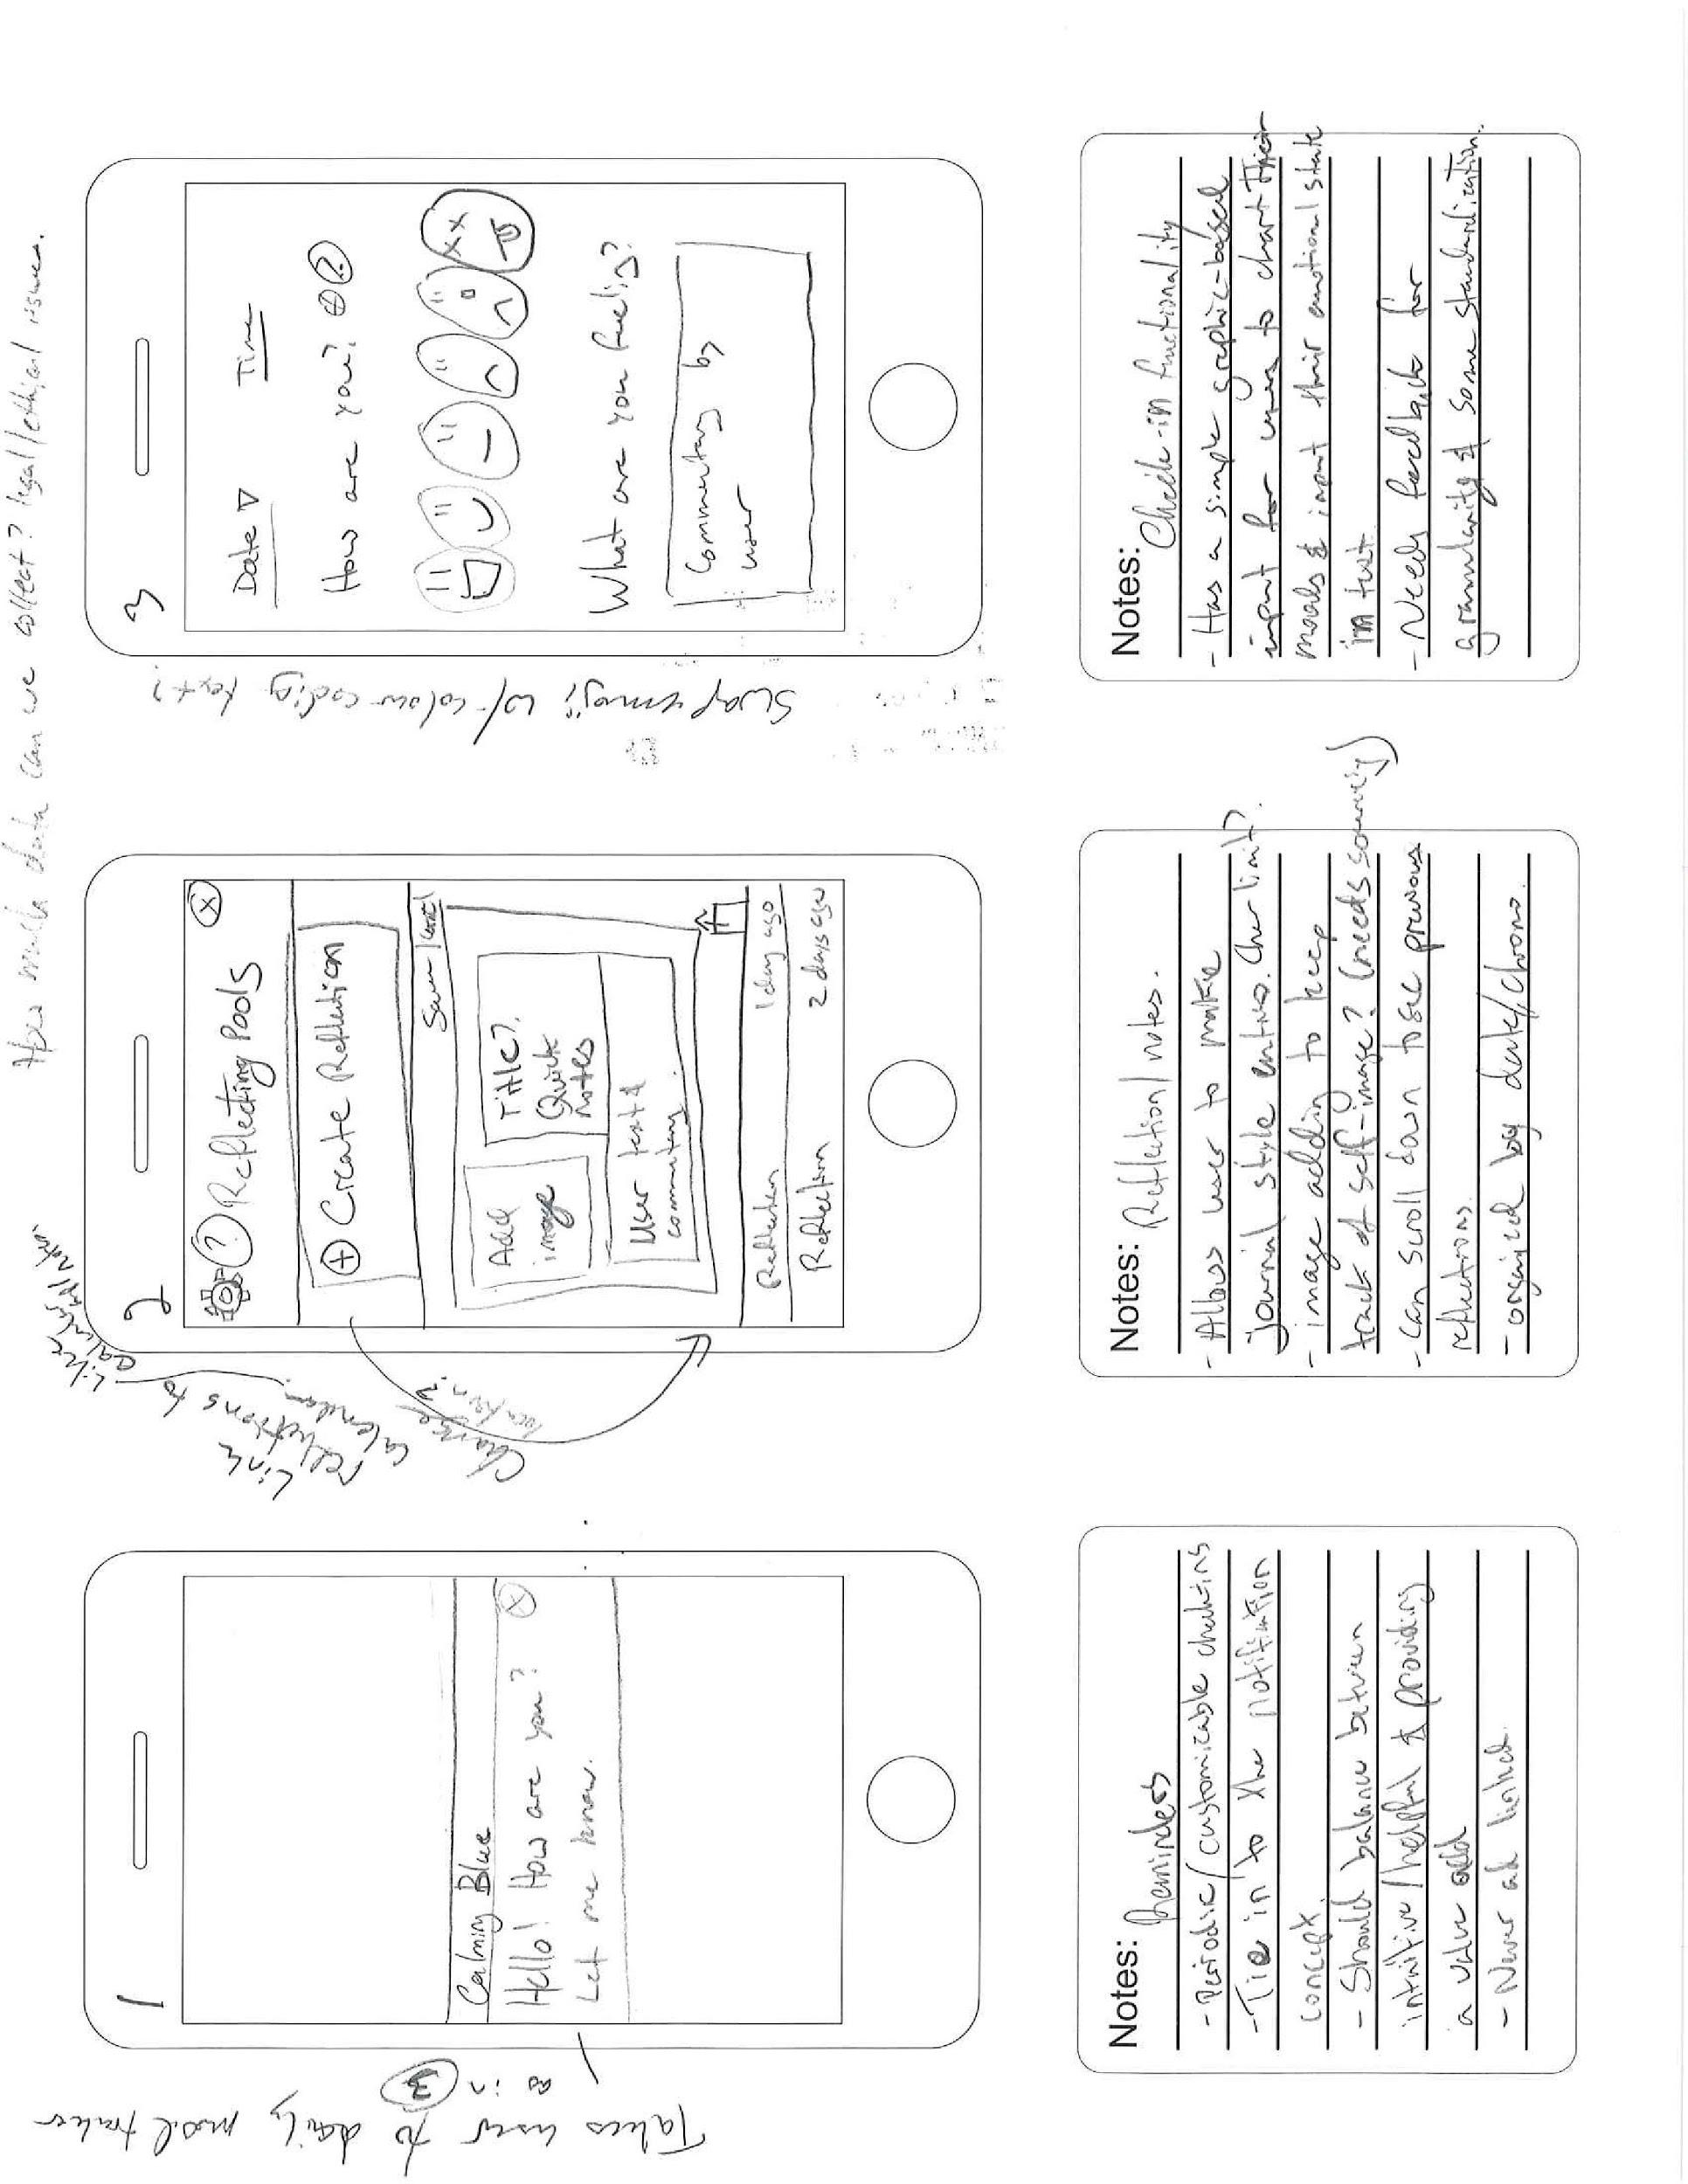 How much data can we collect? legal/ethical issues.
1
Calming Blue
Hello! How are you?
Let me know.
Takes user to daily mood tracker
as in 3
Notes: Reminders
- Periodic/customizable checkins
- Tie in to the notification
concept.
- Should balance between
intuitive/helpful & providing
a value add
- Never ad linked.
2
? Reflecting Pools X
+ Create Reflection
Save
Add
image
Title?
Quick
notes
User text &
commentary.
Reflection 1 day ago
Reflection 2 days ago
Link
reflections to
calendar.
Like
Change
location?
Notes: Reflection/notes.
- Allows user to make
journal style entries. Char limit?
- image adding to keep
track of self-image? (needs sourcing)
- can scroll down to see previous
reflections
- organized by date/chrono.
3
Date Time
How are you? ?
What are you feeling?
Commentary by
user
Swap emoji w/ colour coding text?
Notes: Check-in functionality
- Has a simple graphic-based
input for users to chart their
moods & input their emotional state
in text.
- Needs feedback for
granularity & some standardization.